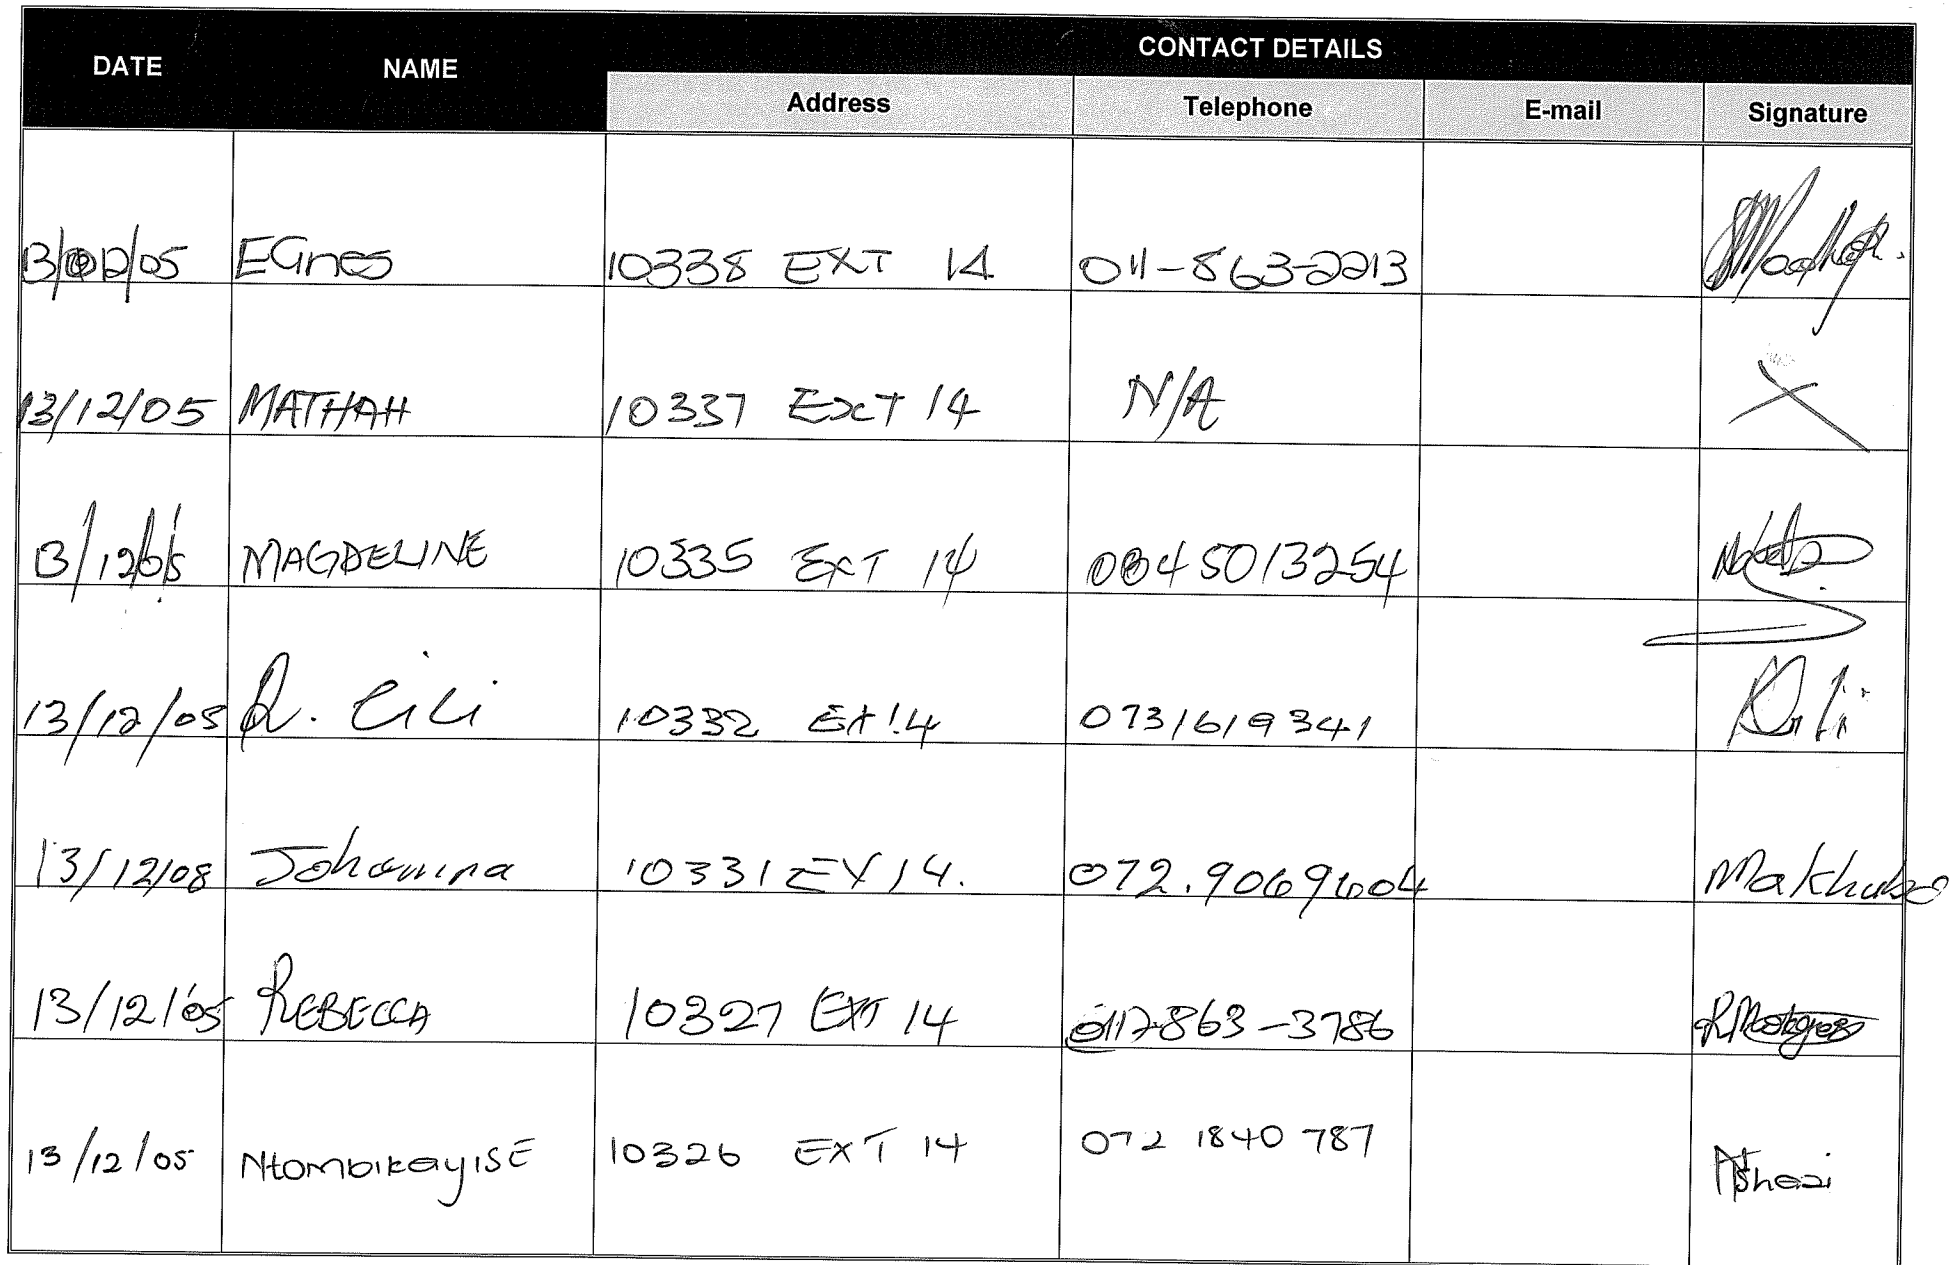 CONTACT DETAILS
DATE NAME
Address Telephone E-mail Signature
13/12/05 EGnes 10338 EXT 14 011-863-2213
13/12/05 MATHAH 10337 EXT 14 N/A X
13/12/05 MAGDELINE 10335 EXT 14 0845013254
13/12/05 R. Cili 10332 EX 14 0731619341 R Cili
13/12/08 Johannna 10331 EX 14. 072.9069604 Makhubo
13/12/05 REBECCA 10327 EXT 14 011-863-3786
13/12/05 NtombikayISE 10326 EXT 14 072 1840 787 Nshazi